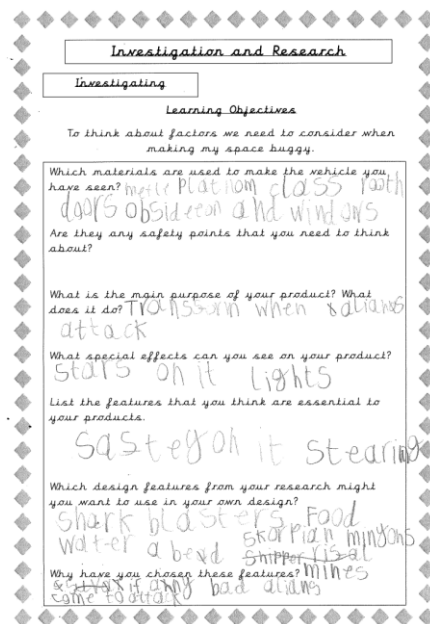 Investigation and Research
Investigating
Learning Objectives
To think about factors we need to consider when
making my space buggy.
Which materials are used to make the vehicle you
have seen? platnom class
doors and windows
Are they any safety points that you need to think
about?
What is the main purpose of your product? What
does it do? when alians
attack
What special effects can you see on your product?
stars on it lights
List the features that you think are essential to
your products.
on it stearing
Which design features from your research might
you want to use in your own design?
shark blasters Food
skorpian minyons
wat-er a bed
Why have you chosen these features? mines
if anny bad alians
come to attack